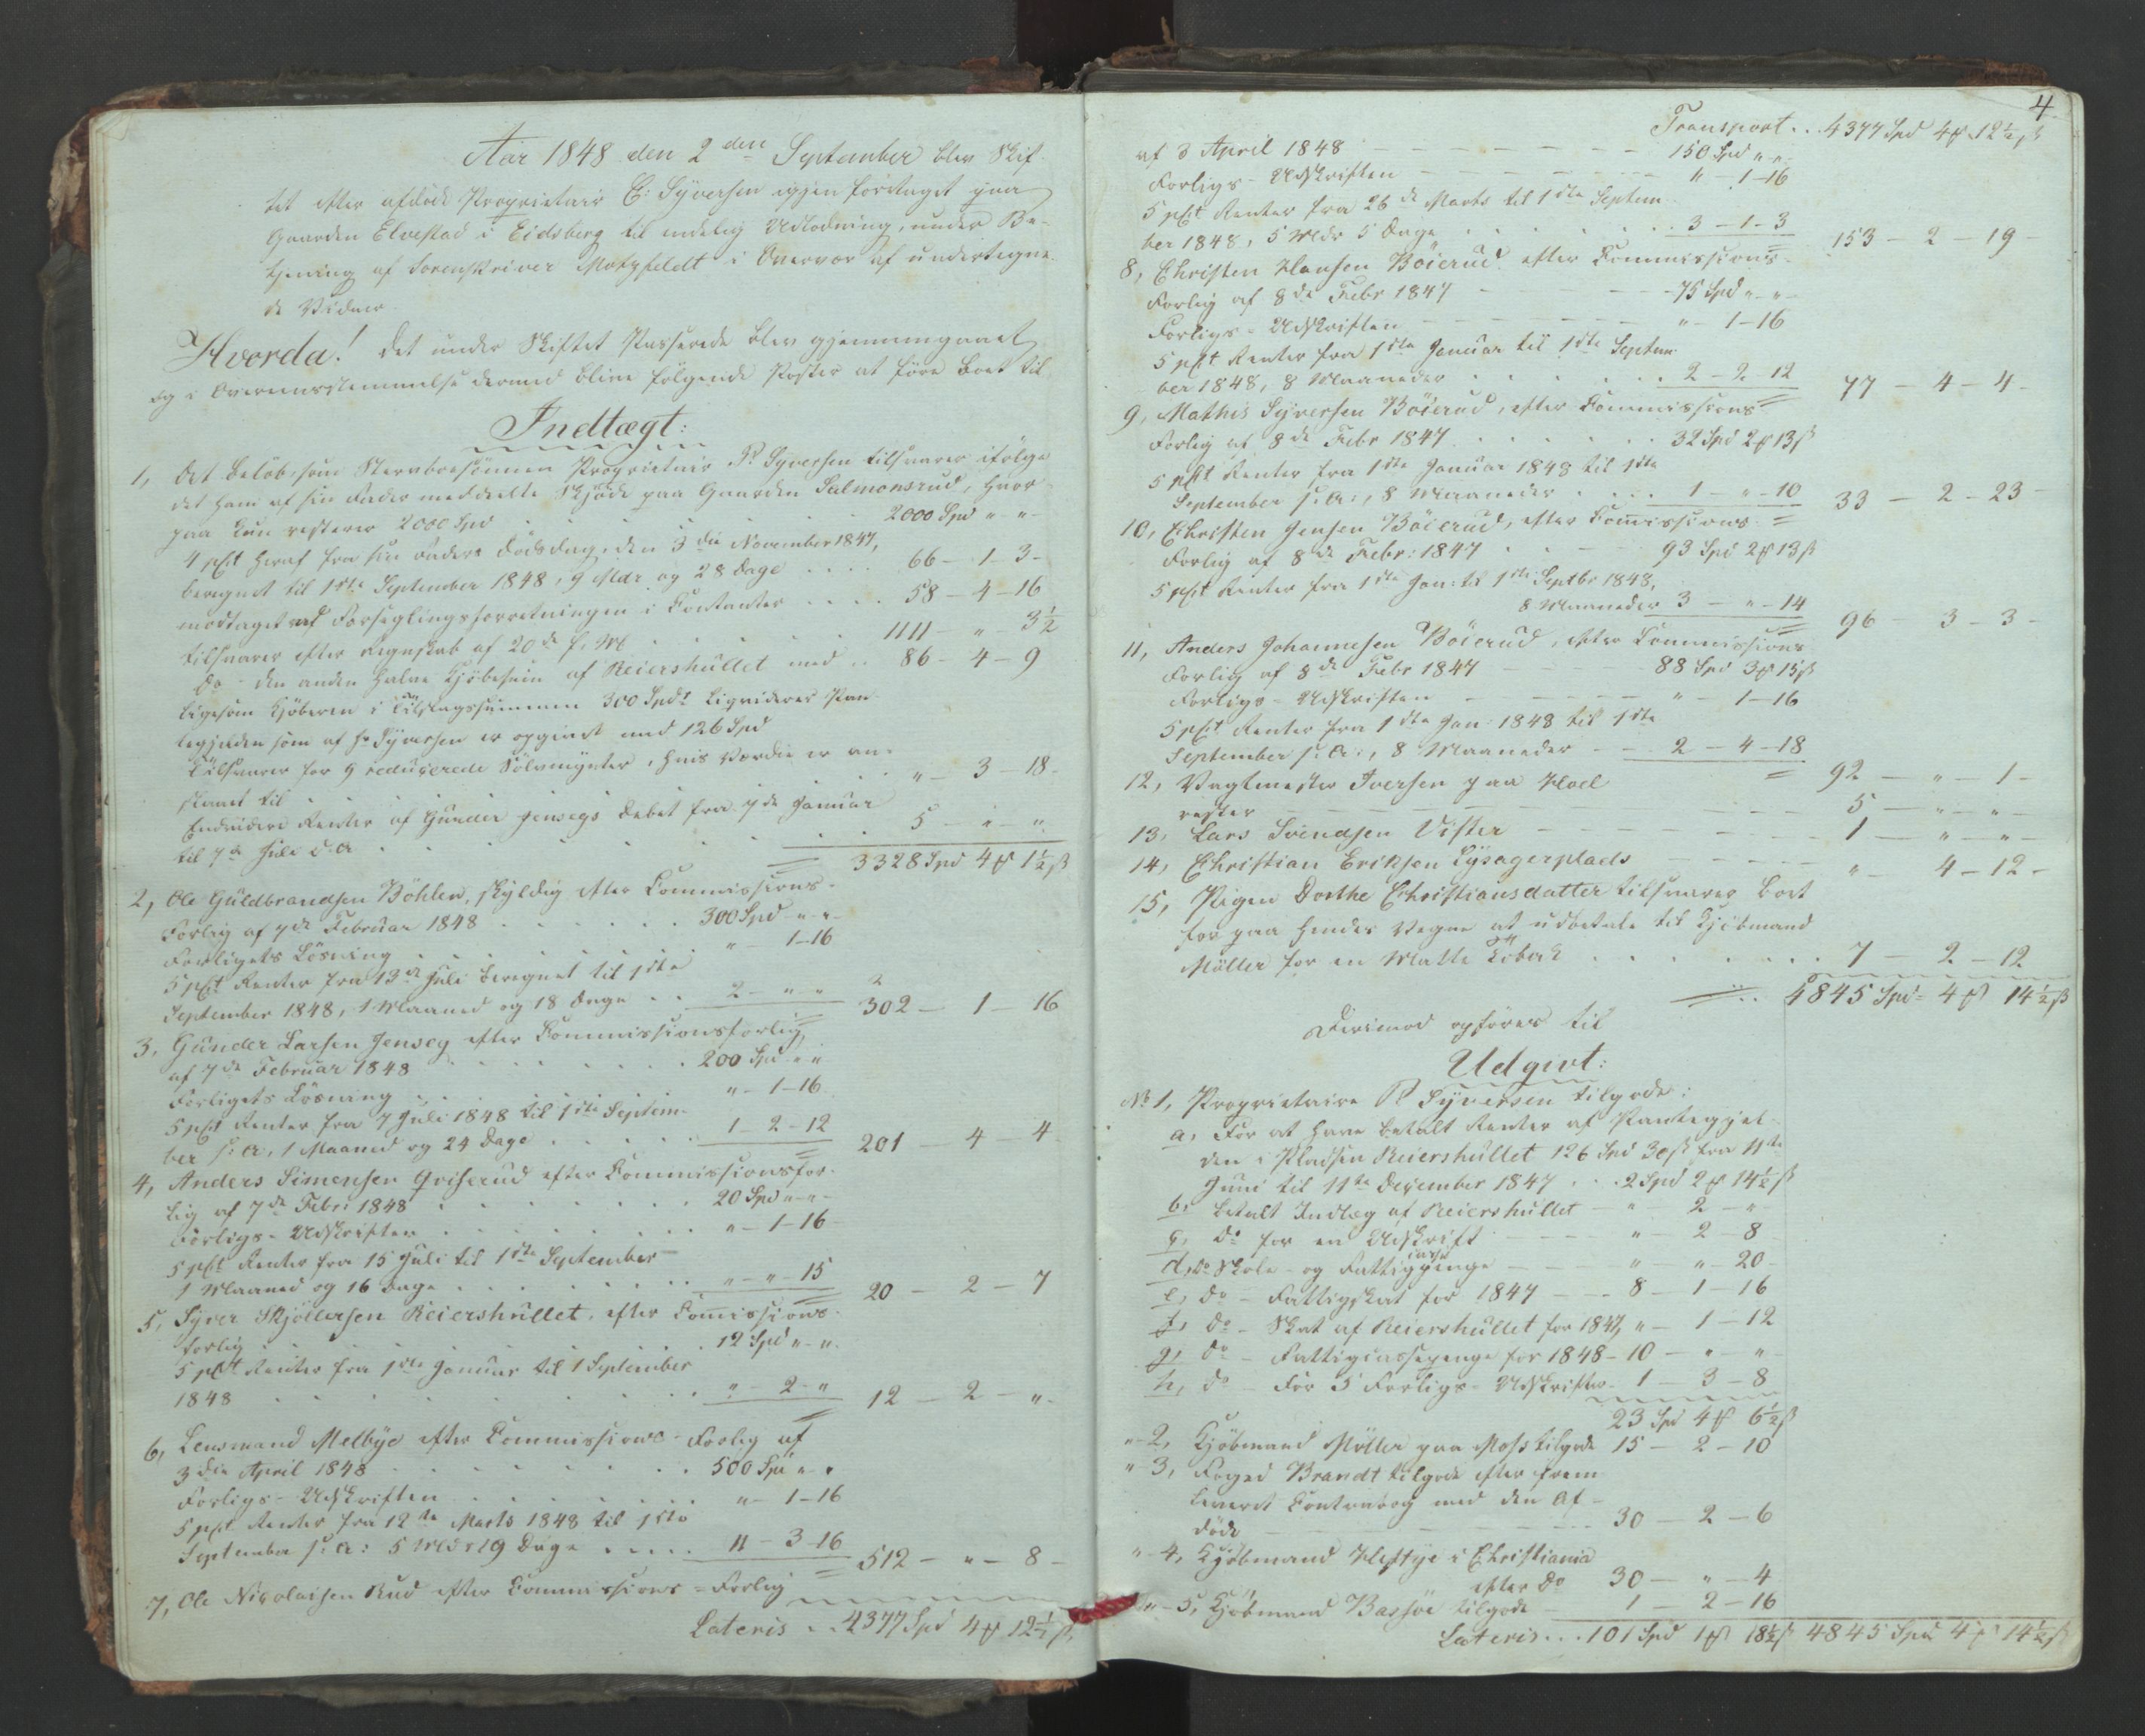 Aar 1848 den 2den September blev Skif-
tet efter afdøde Proprietair E: Syversen igjen foretaget paa
Gaarden Elvestad i Eidsberg til endelig Udlodning, under Be-
tjening af Sorenskriver Motzfeldt i Overvær af undertegne-
de Vidner.
Hvorda! det under Skiftet Passerede blev gjennemgaaet
og i Overeensstemmelse dermed blive følgende Poster at føre Boet til
Indtægt:
1, Det Beløb, som Stervboesønnen Proprietair P. Syversen tilsvarer ifølge
det ham af sin Fader meddeelte Skjøde paa Gaarden Salmonsrud, hvor-
paa kun resterer 2000 Spd . . . 2000 Spd " - " -
4 pCt heraf fra sin Faders Dødsdag, den 3die November 1847,
beregnet til 1ste September 1848, 9 Mdr og 28 Dage . . . . 66 - 1 - 3 -
modtaget ved Forseglingsforretningen i Contanter . . . . 58 - 4 - 16
tilsvarer efter Regnskab af 20de f. M. . . . . . 1111 - " - 3½
Do - den anden halve Kjøbesum af Reiershullet med . . 86 - 4 - 9
ligesom Kjøberen i Tilslagssummen 300 Spd liqviderer Pan-
tegjelden som af Hr Syversen er opgivet med 126 Spd
Tilsvarer for 9 reducerede Sølvmynter, hvis Værdie er an-
slaaet til . . . " - 3 - 18 -
Endvidere Renter af Gunder Jensegs Debet fra 7de Januar
til 7de Juli d. A . . . 5 - " - "
3328 Spd 4 ₰ 1½ ß
2, Ole Guldbrandsen Bøhler, skyldig efter Commissions-
Forlig af 7de Februar 1848 . . . . . . 300 Spd - " - " -
Forligets Løsning . . . . . " - 1 - 16
5 pCt Renter fra 13de Juli beregnet til 1ste
September 1848, 1 Maaned og 18 Dage . . 2 - " - " 302 - 1 - 16
3, Gunder Larsen Jenseg efter Commissionsforlig,
af 7de Februar 1848 . . . . . . 200 Spd - " - "
Forligets Løsning . . . " - 1 - 16
5 pCt Renter fra 7 Juli 1848 til 1ste Septem-
ber s: A, 1 Maaned og 24 Dage . . . . . 1 - 2 - 12 201 - 4 - 4 -
4, Anders Simensen Griserud efter Commissionsfor-
lig af 7de Febr: 1848 . . . . . . 20 Spd " - " -
Forligs-Udskriften . . . . . . " - 1 - 16 -
5 pCt Renter fra 15 Juli til 1ste September
1 Maaned og 16 Dage . . . . . . " - " - 15 20 - 2 - 7
5, Syver Skjøllersen Reiershullet, efter Comissions-
forlig . . . . . . 12 Spd " - " -
5 pCt Renter fra 1ste Januar til 1 September
1848 . . . . . . " - 2 - " 12 - 2 - " -
6, Lensmand Melbye efter Commissions-Forlig af
3die April 1848 . . . . . . 500 Spd " - "
Forligs-Udskriften . . . . . . " - 1 - 16
5 pCt Renter fra 12te Marts 1848 til 1ste
September s: A: 5 Mdr 19 Dage . . . . . 11 - 3 - 16 512 - " - 8 -
7, Ole Nicolaisen Rud efter Commissions-Forlig
Lateris . . . 4377 Spd 4 ₰ 12½ ß
4
Transport . . 4377 Spd 4 ₰ 12½ ß
af 3 April 1848 - - - - - 150 Spd " - " -
Forligs-Udskriften - - - - - " - 1 - 16
5 pCt Renter fra 26de Marts til 1ste Septem-
ber 1848, 5 Mdr 5 Dage . . . . . . 3 - 1 - 3 153 - 2 - 19 -
8, Christen Hansen Bøierud efter Commissions-
Forlig af 8de Febr 1847 - - - - 75 Spd " - " -
Forligs-Udskriften - - - - " - 1 - 16
5 pCt Renter fra 1ste Januar til 1ste Septem-
ber 1848, 8 Maaneder . . . . . . 2 - 2 - 12 77 - 4 - 4 -
9, Mathis Syversen Bøierud, efter Commissions-
Forlig af 8de Febr 1847 . . . . . . 32 Spd 2 ₰ 13 ß
5 pCt Renter fra 1ste Januar 1848 til 1ste
September s: A:, 8 Maaneder . . . . 1 - " - 10 33 - 2 - 23 -
10, Christen Jensen Bøierud, efter Comissions-
Forlig af 8de Febr: 1847 . . - - 93 Spd 2 ₰ 13 ß
5 pCt Renter fra 1ste Jan: til 1ste Septbr 1848,
8 Maaneder 3 - " - 14 96 - 3 - 3 -
11, Anders Johannesen Bøierud, efter Commissions-
Forlig af 8de Febr 1847 - - - - 88 Spd 3 ₰ 15 ß
Forligs-Udskriften - - - - " - 1 - 16
5 pCt Renter fra 1ste Jan: 1848 til 1ste
September s: A:, 8 Maaneder - - . 2 - 4 - 18 92 - " - 1 -
12, Vagtmester Iversen paa Hoel
rester - - - - - - 5 - " - " -
13, Lars Svendsen Vister - - - - - 1 - " - " -
14, Christian Eriksen Lysagerplads - - - - " - 4 - 12 -
15, Pigen Dorthe Christiansdatter tilsvarer Boet
for paa hendes Vegne at udbetale til Kjøbmand
Møller for en Matte Tobak . . . . . . 7 - 2 - 12
4845 Spd - 4 ₰ 14½ ß
Derimod opføres til
Udgivt:
No 1, Proprietaire P Syversen tilgode:
a, For at have betalt Renter af Pantegjel-
den i Pladsen Reiershullet 126 Spd 30 ß fra 11te
Juni til 11te December 1847 . . . 2 Spd 2 ₰ 14½ ß
b, betalt Indlæg af Reiershullet - " - 2 - " -
c, do for en Udskrift - - - - " - 2 - 8
d, do Skole- og Fattigcassepenge - - - " " - 20 -
e, do - Fattigskat for 1847 - - - 8 - 1 - 16
f, do - Skat af Reiershullet for 1847, " - 1 - 12
g, do - Fattigcassepenge for 1848 - 10 - " - " -
h, do - For 5 Forligs-Udskrifter - 1 - 3 - 8
23 Spd 4 ₰ 6½ ß
" - 2, Kjøbmand Møller paa Moss tilgode 15 - 2 - 10
" - 3, Foged Brandt tilgode efter frem-
leveret Contrabog med den Af-
døde - - - - - 30 - 2 - 6
" - 4, Kjøbmand Heftye i Christiania
efter Do 30 - " - 4
" - 5, Kjøbmand Bassøe tilgode - 1 - 2 - 16
Lateris . . . 101 Spd 1 ₰ 18½ ß 4845 Spd 4 ₰ 14½ ß